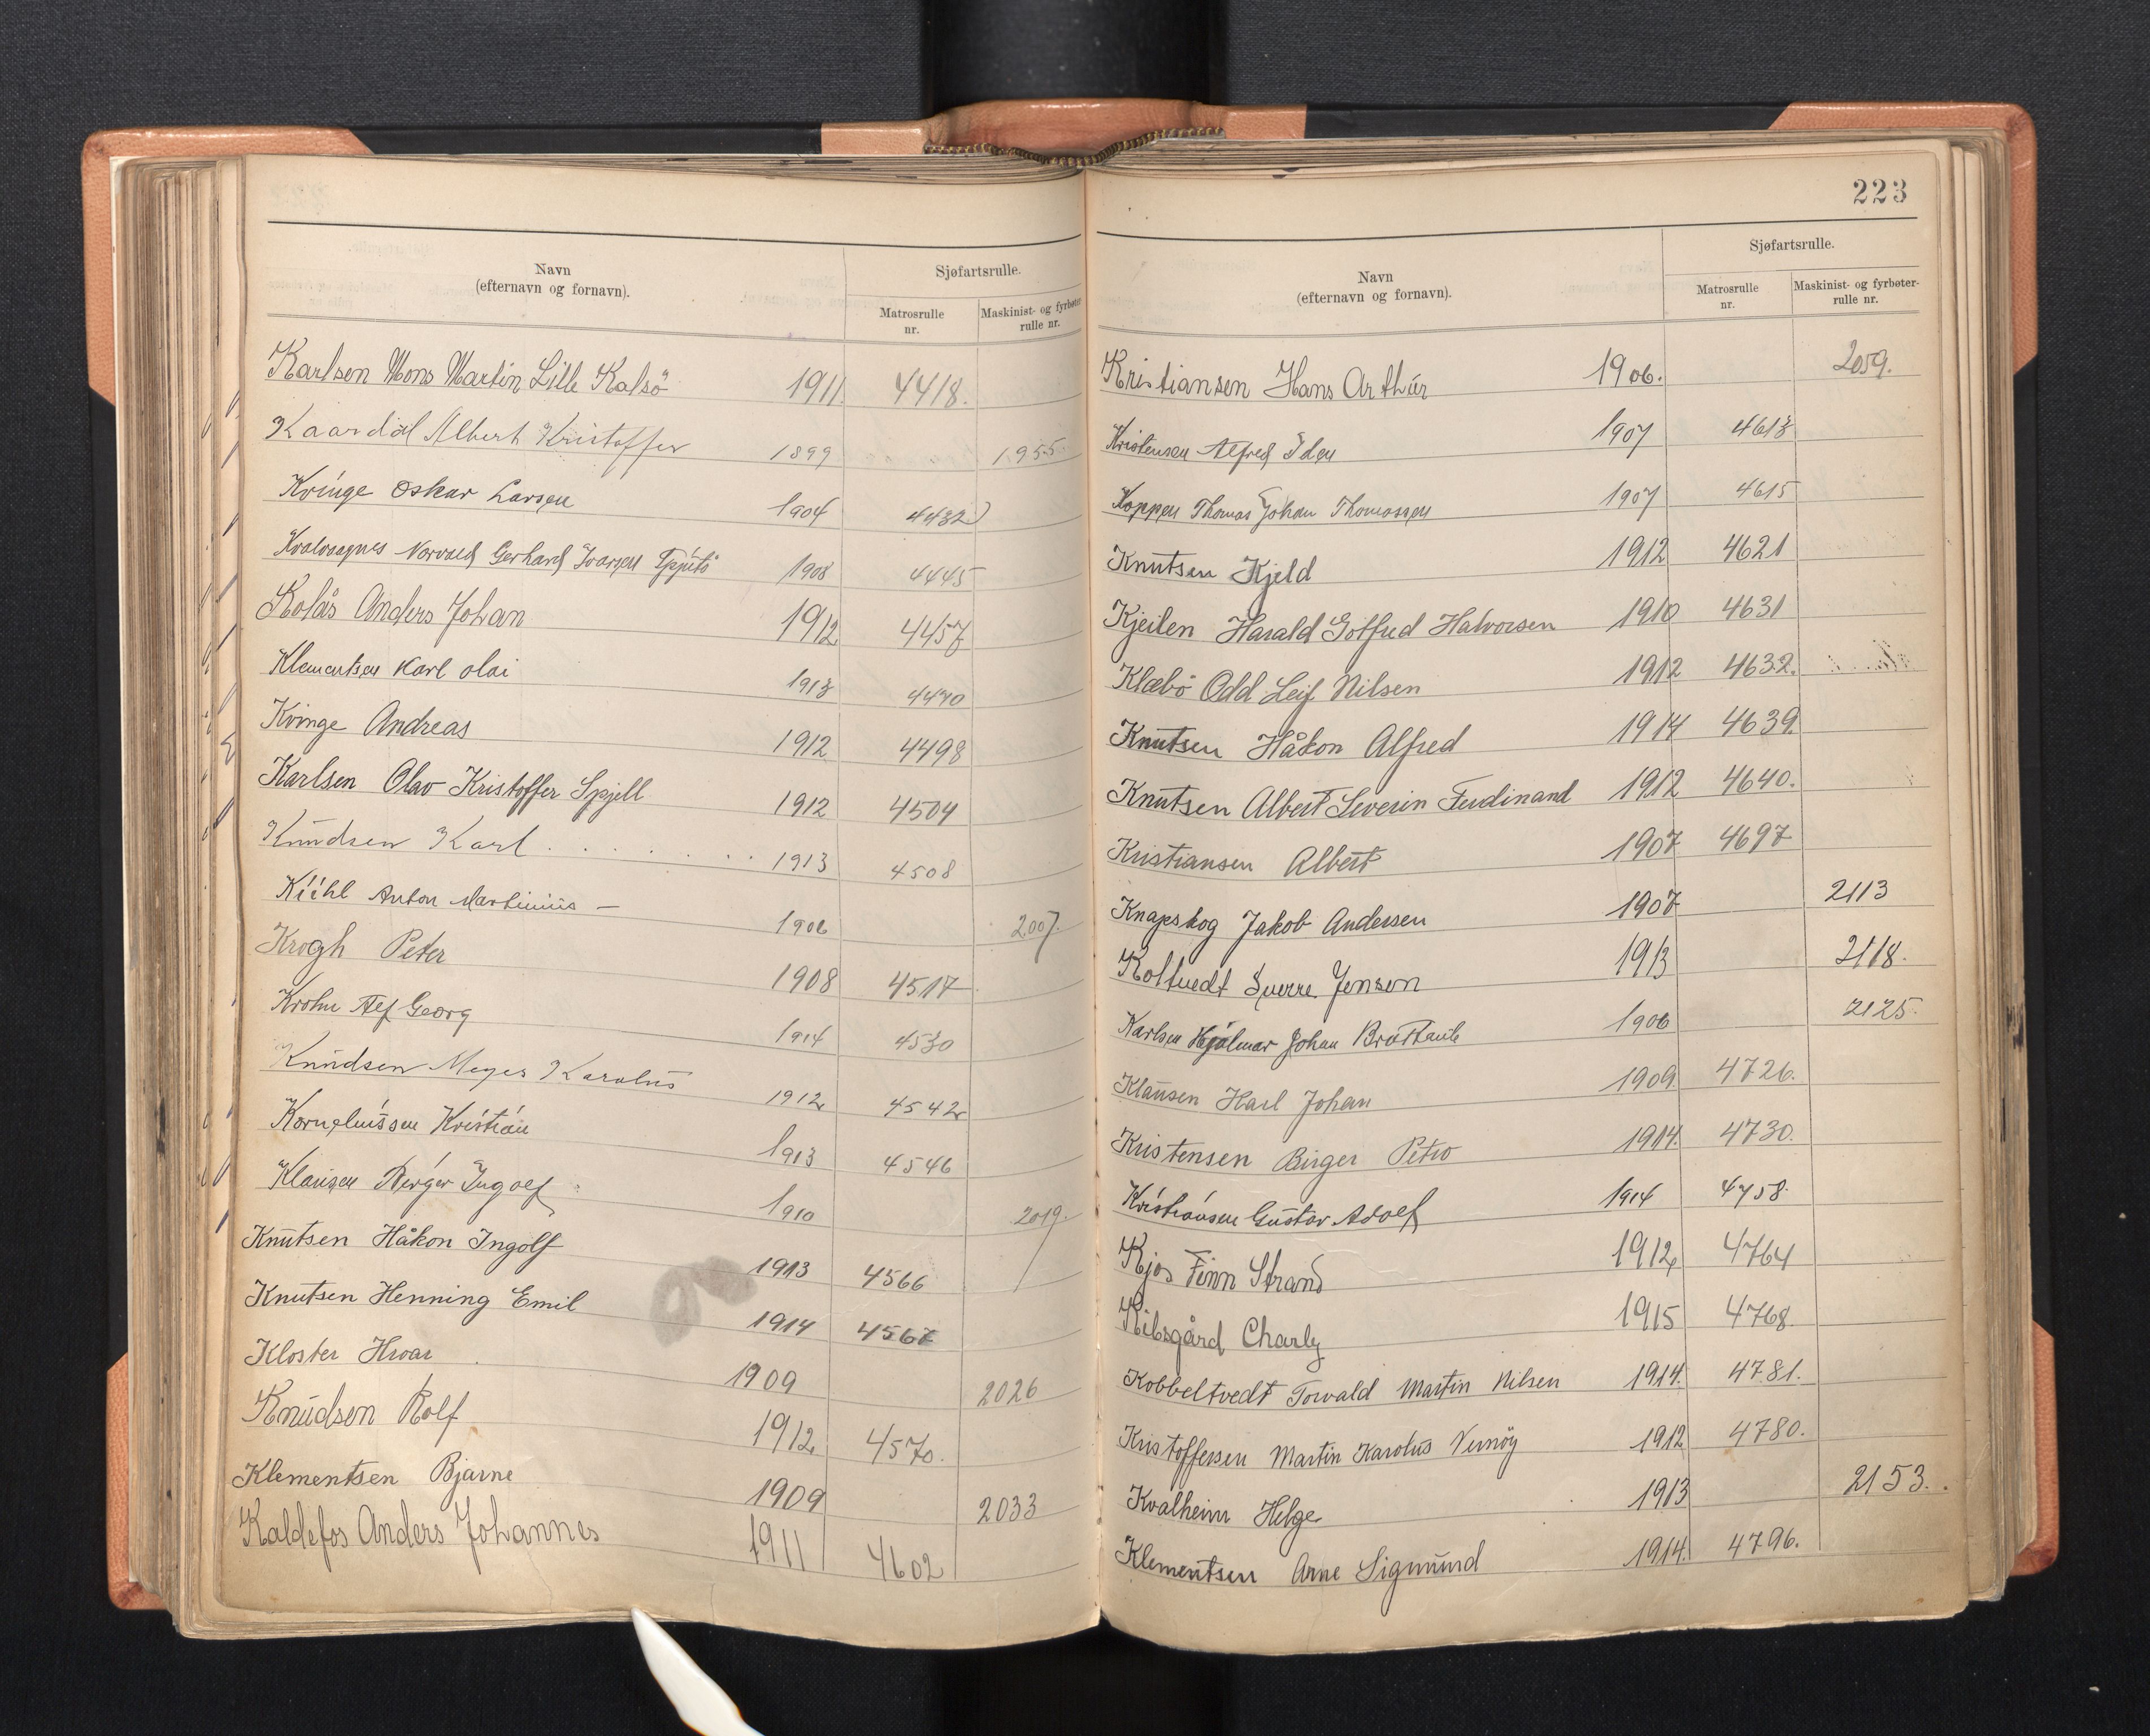 Navn
(efternavn og fornavn).
Sjøfartsrulle.
Matrosrulle
nr.
Maskinist- og fyrbøter
rulle nr.
Karlsen Mons Martin Lille Kalsö 1911. 4418.
Kaardal Albert Kristoffer 1899 1955.
Kvinge Oskar Larsen 1904 4432
Norvald Gerhard Ivarsen 1908 4445
Kolås Anders Johan 1912 4457
Klementsen Karl Olai 1913 4470
Kvinge Andreas 1912 4498
Karlsen Olav Kristoffer Spjell 1912 4504
Knudsen Karl . . . . . . . 1913 4508
Kühl Anton Martinius — 1906 2007.
Krogh Peter 1908 4517
Krohn Alf Georg 1914 4530
Knudsen Meyer Karolus 1912 4542
Korneliussen Kristian 1913 4546
Klausen Birger Ingolf 1910 2019.
Knutsen Håkon Ingolf 1913 4566
Knutsen Henning Emil 1914 4567
Kloster Hroar 1909 2026
Knudsen Rolf 1912 4570.
Klementsen Bjarne 1909 2033
Kaldefos Anders Johannes 1911 4602
223
Navn
(efternavn og fornavn).
Sjøfartsrulle.
Matrosrulle
nr.
Maskinist- og fyrbøter-
rulle nr.
Kristiansen Hans Arthur 1906. 2059.
Kristensen Alfred Iden 1907 4613
Koppen Thomas Johan Thomassen 1907 4615
Knutsen Kjeld 1912 4621
Kjeilen Harald Gotfred Halvorsen 1910 4631
Klæbö Odd Leif Nilsen 1912 4632.
Knutsen Håkon Alfred 1914 4639.
Knutsen Albert Severin Ferdinand 1912 4640.
Kristiansen Albert 1907 4697
Knapskog Jakob Andersen 1907 2113
Koltvedt Sverre Jenson 1913 2118.
Karlsen Hjalmar Johan Brattaule 1906 2125.
Klausen Harl Johan 1909. 4726.
Kristensen Birger Petro 1914. 4730.
Kristiansen Gustav Adolf 1914 4758.
Kjos Finn Strand 1912 4764
Kilsgård Charly 1915 4768.
Kobbeltvedt Torvald Martin Nilsen 1914. 4781.
Kristoffersen Martin Karolus Vernöy 1912 4780.
Kvalheim Helge 1913 2153.
Klementsen Arne Sigmund 1914. 4796.